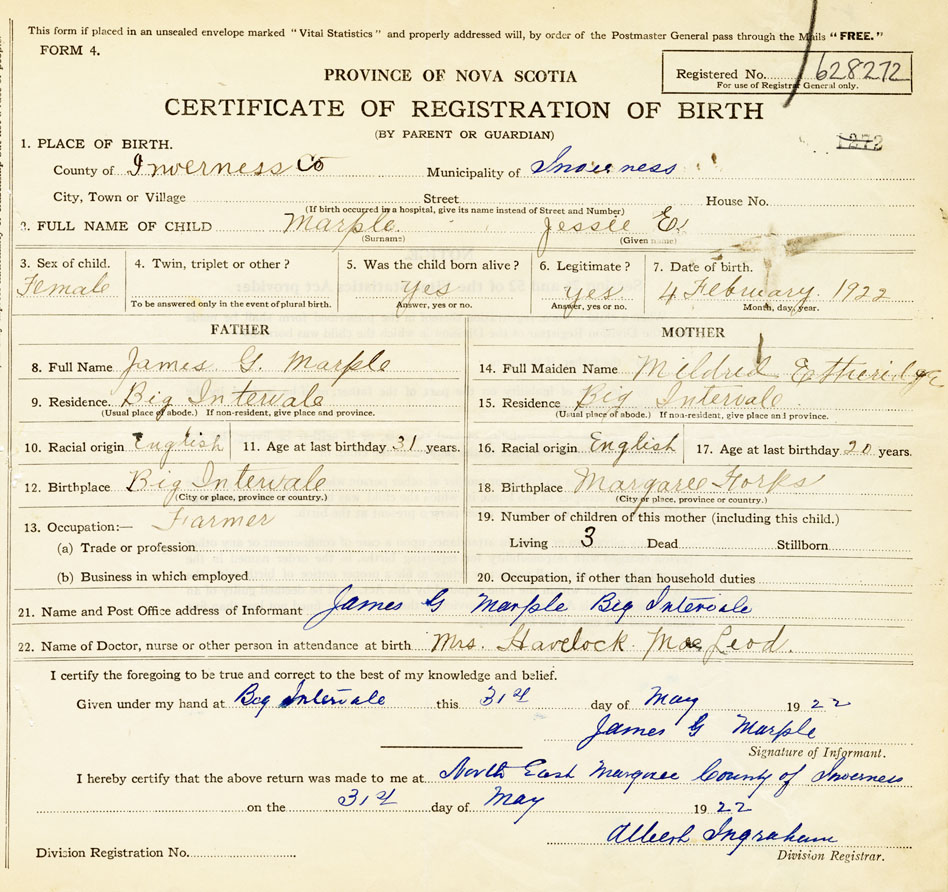 This form if placed in an unsealed envelope marked "Vital Statistics" and properly addressed will, by order of the Postmaster General pass through the Mails "FREE."
FORM 4.
PROVINCE OF NOVA SCOTIA
Registered No. 628272
For use of Registrar General only.
CERTIFICATE OF REGISTRATION OF BIRTH
(BY PARENT OR GUARDIAN)
1272
1. PLACE OF BIRTH.
County of Inverness Co Municipality of Inverness
City, Town or Village Street House No.
(If birth occurred in a hospital, give its name instead of Street and Number)
2. FULL NAME OF CHILD Marple Jessie E.
(Surname) (Given name)
3. Sex of child. 4. Twin, triplet or other? 5. Was the child born alive? 6. Legitimate? 7. Date of birth.
Female Yes yes 4 February 1922
To be answered only in the event of plural birth. Answer, yes or no. Answer, yes or no. Month, day, year.
FATHER
8. Full Name James G. Marple
9. Residence Big Intervale
(Usual place of abode.) If non-resident, give place and province.
10. Racial origin English 11. Age at last birthday 31 years.
12. Birthplace Big Intervale
(City or place, province or country.)
13. Occupation:— Farmer
(a) Trade or profession
(b) Business in which employed
MOTHER
14. Full Maiden Name Mildred Etheridge
15. Residence Big Intervale
(Usual place of abode.) If non-resident, give place and province.
16. Racial origin English 17. Age at last birthday 20 years.
18. Birthplace Margaree Forks
(City or place, province or country.)
19. Number of children of this mother (including this child.)
Living 3 Dead Stillborn
20. Occupation, if other than household duties
21. Name and Post Office address of Informant James G Marple Big Intervale
22. Name of Doctor, nurse or other person in attendance at birth Mrs. Havelock MacLeod.
I certify the foregoing to be true and correct to the best of my knowledge and belief.
Given under my hand at Big Intervale this 31st day of May 1922
James G Marple
Signature of Informant.
I hereby certify that the above return was made to me at North East Margaree County of Inverness
on the 31st day of May 1922
Albert Ingraham
Division Registrar.
Division Registration No.